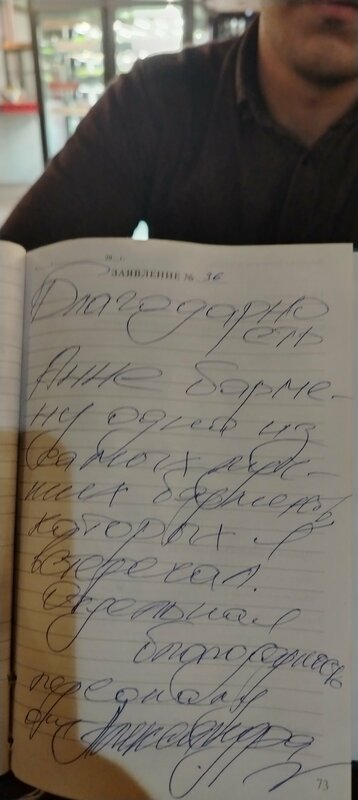 20 г.
ЗАЯВЛЕНИЕ № 36
Благодарно
сть
Анне барме-
ну одна из
самых луч-
ших барменов,
которых я
встречал.
Отдельная
благодарность
персоналу
от Александра
73